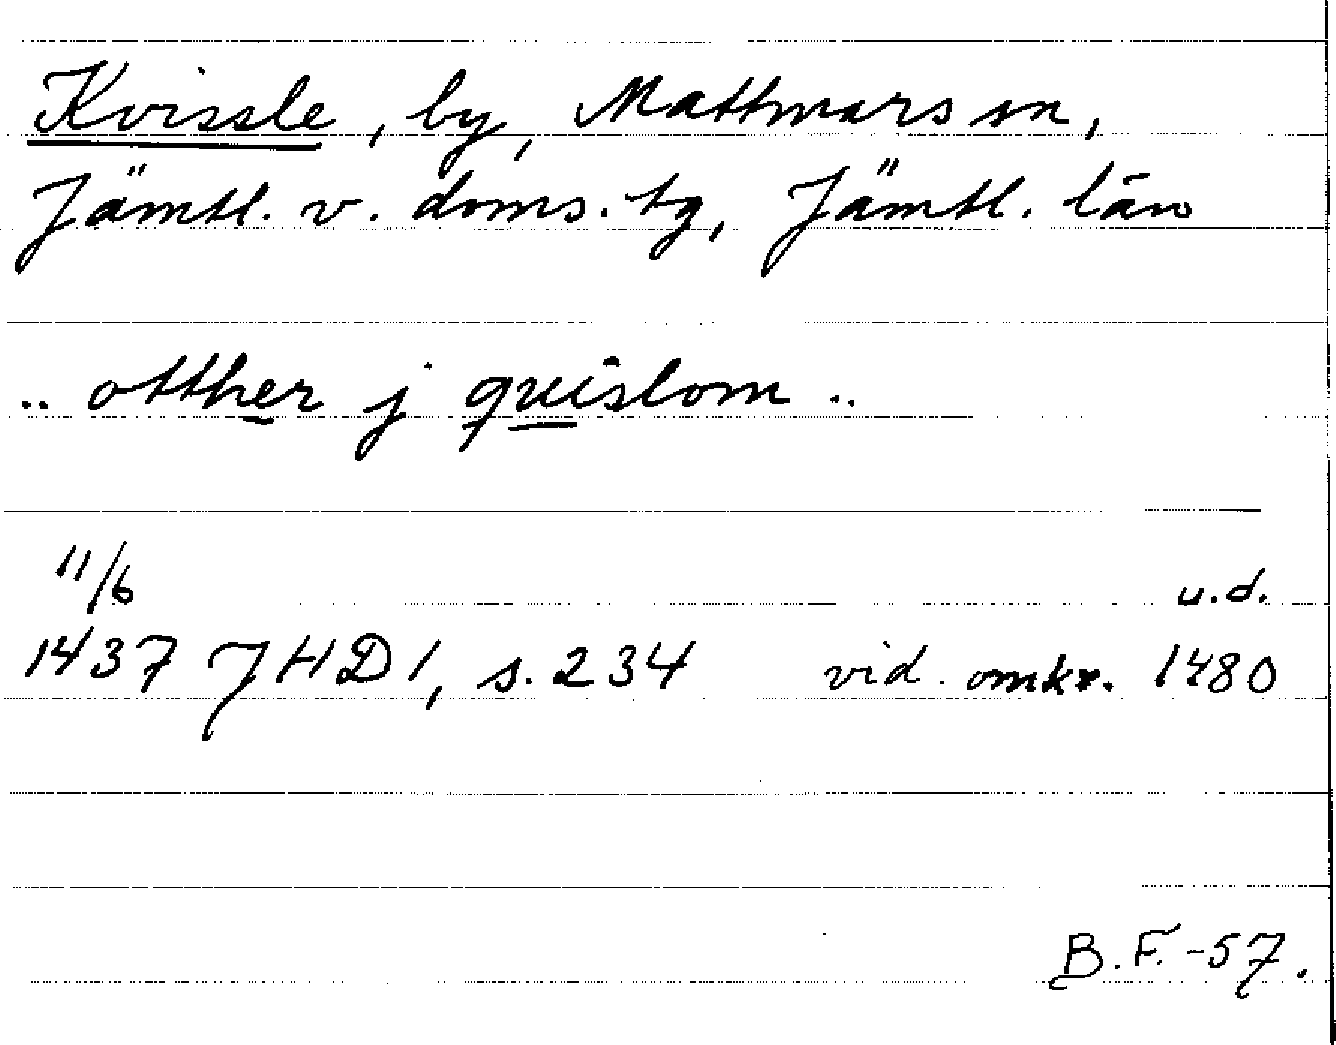 Kvissle, by, Mattmars sn,
Jämtl. v. doms. tg, Jämtl. län
.. otther j quislom ..
11/6 u.d.
1437 JHD 1, s. 234 vid. omkr. 1480
B. F. -57.